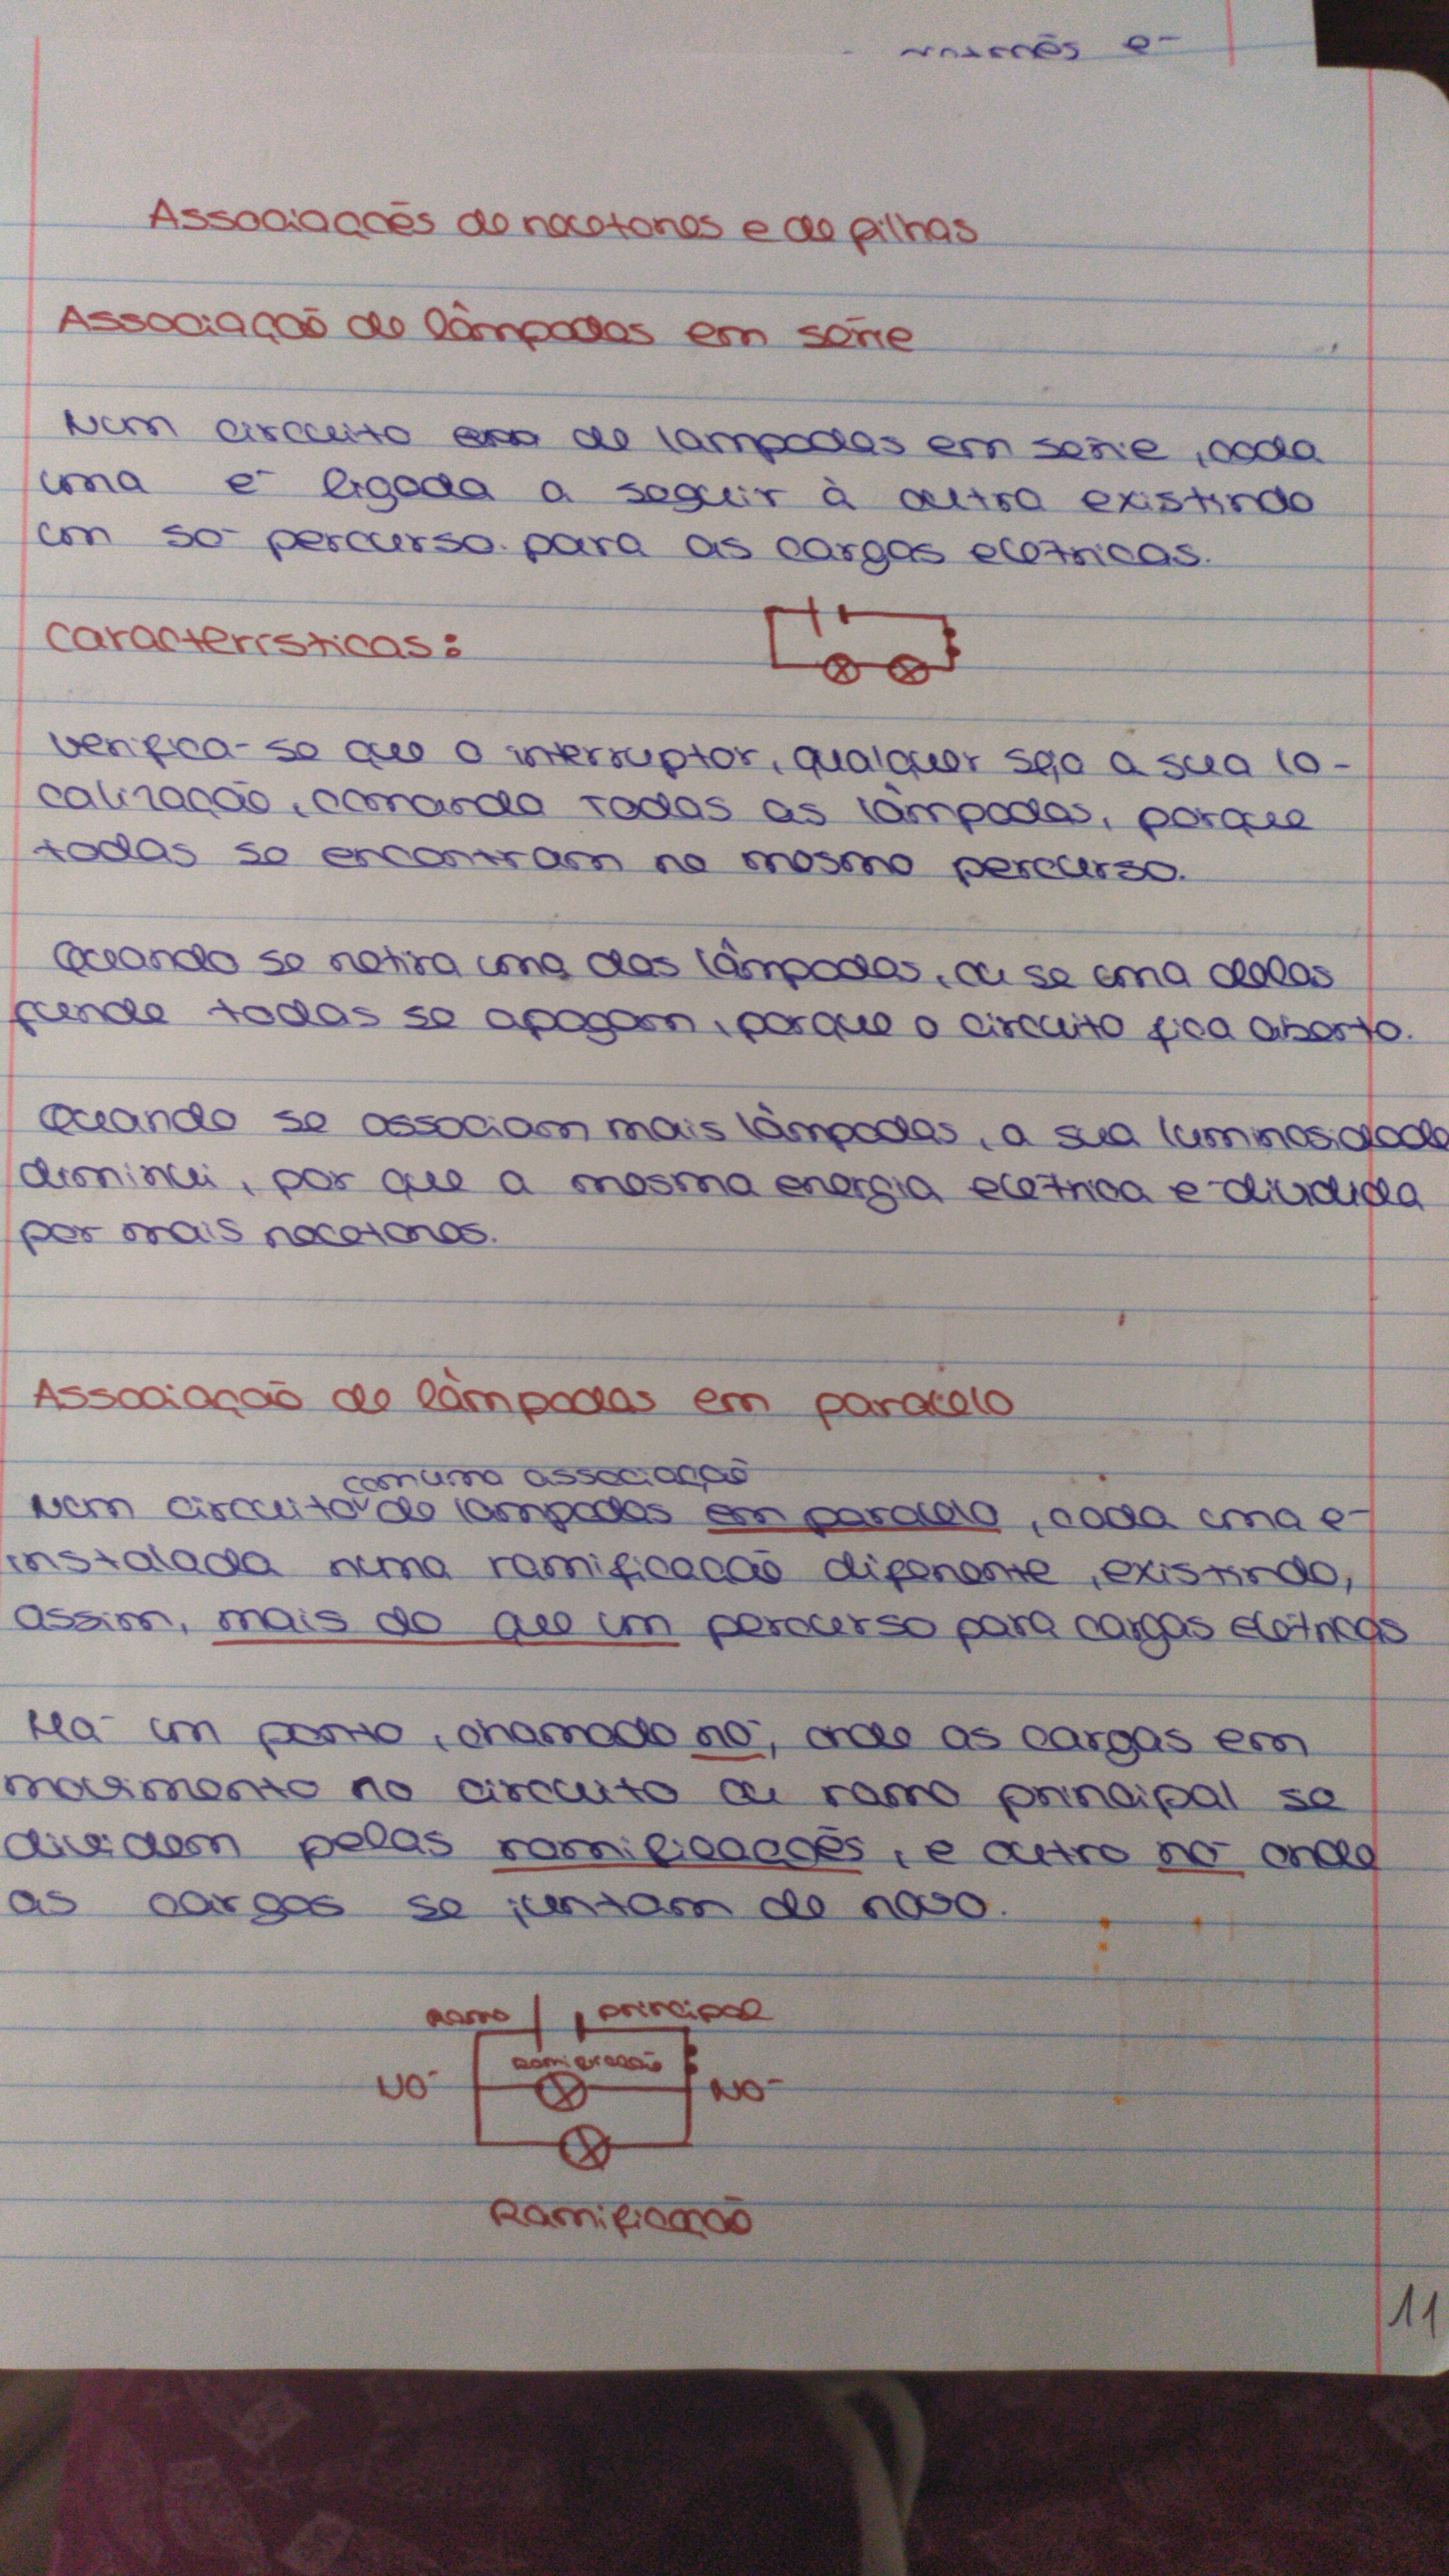 Associações de recetores e de pilhas
Associação de lâmpadas em série
Num circuito de lampadas em serie, cada
uma é ligada a seguir à outra existindo
um só percurso para as cargas elétricas.
Características:
Verifica-se que o interruptor, qualquer seja a sua lo-
calização, comanda todas as lâmpadas, porque
todas se encontram no mesmo percurso.
Quando se retira uma das lâmpadas, ou se uma delas
funde todas se apagam, porque o circuito fica aberto.
Quando se associam mais lâmpadas, a sua luminosidade
diminui, por que a mesma energia elétrica é dividida
por mais recetores.
Associação de lâmpadas em paralelo
com uma associação
Num circuito de lampadas em paralelo, cada uma é
instalada numa ramificação diferente, existindo,
assim, mais do que um percurso para cargas elétricas
Há um ponto, chamado nó, onde as cargas em
movimento no circuito ou ramo principal se
dividem pelas ramificações, e outro nó onde
as cargas se juntam de novo.
Ramo principal
Ramificação
Nó Nó
Ramificação
11